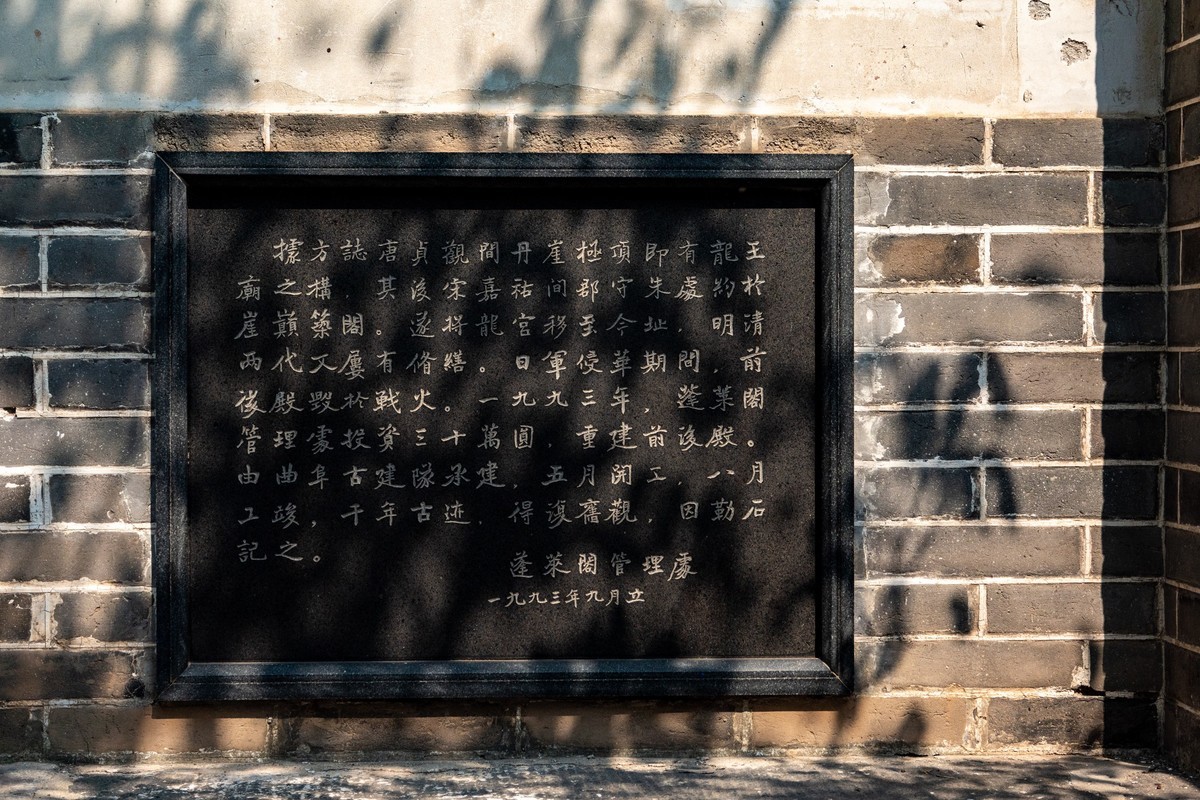 據方誌唐貞觀間丹崖極頂即有龍王
廟之構，其後宋嘉祐間郡守朱處約於
崖巔築閣。遂將龍宮移至今址，明清
兩代又屢有脩繕。日軍侵華期間，前
後殿毀於戰火。一九九三年，蓬萊閣
管理處投資三十萬圓，重建前後殿。
由曲阜古建隊承建，五月開工，八月
工竣，千年古迹，得復舊觀，因勒石
記之。
蓬萊閣管理處
一九九三年九月立